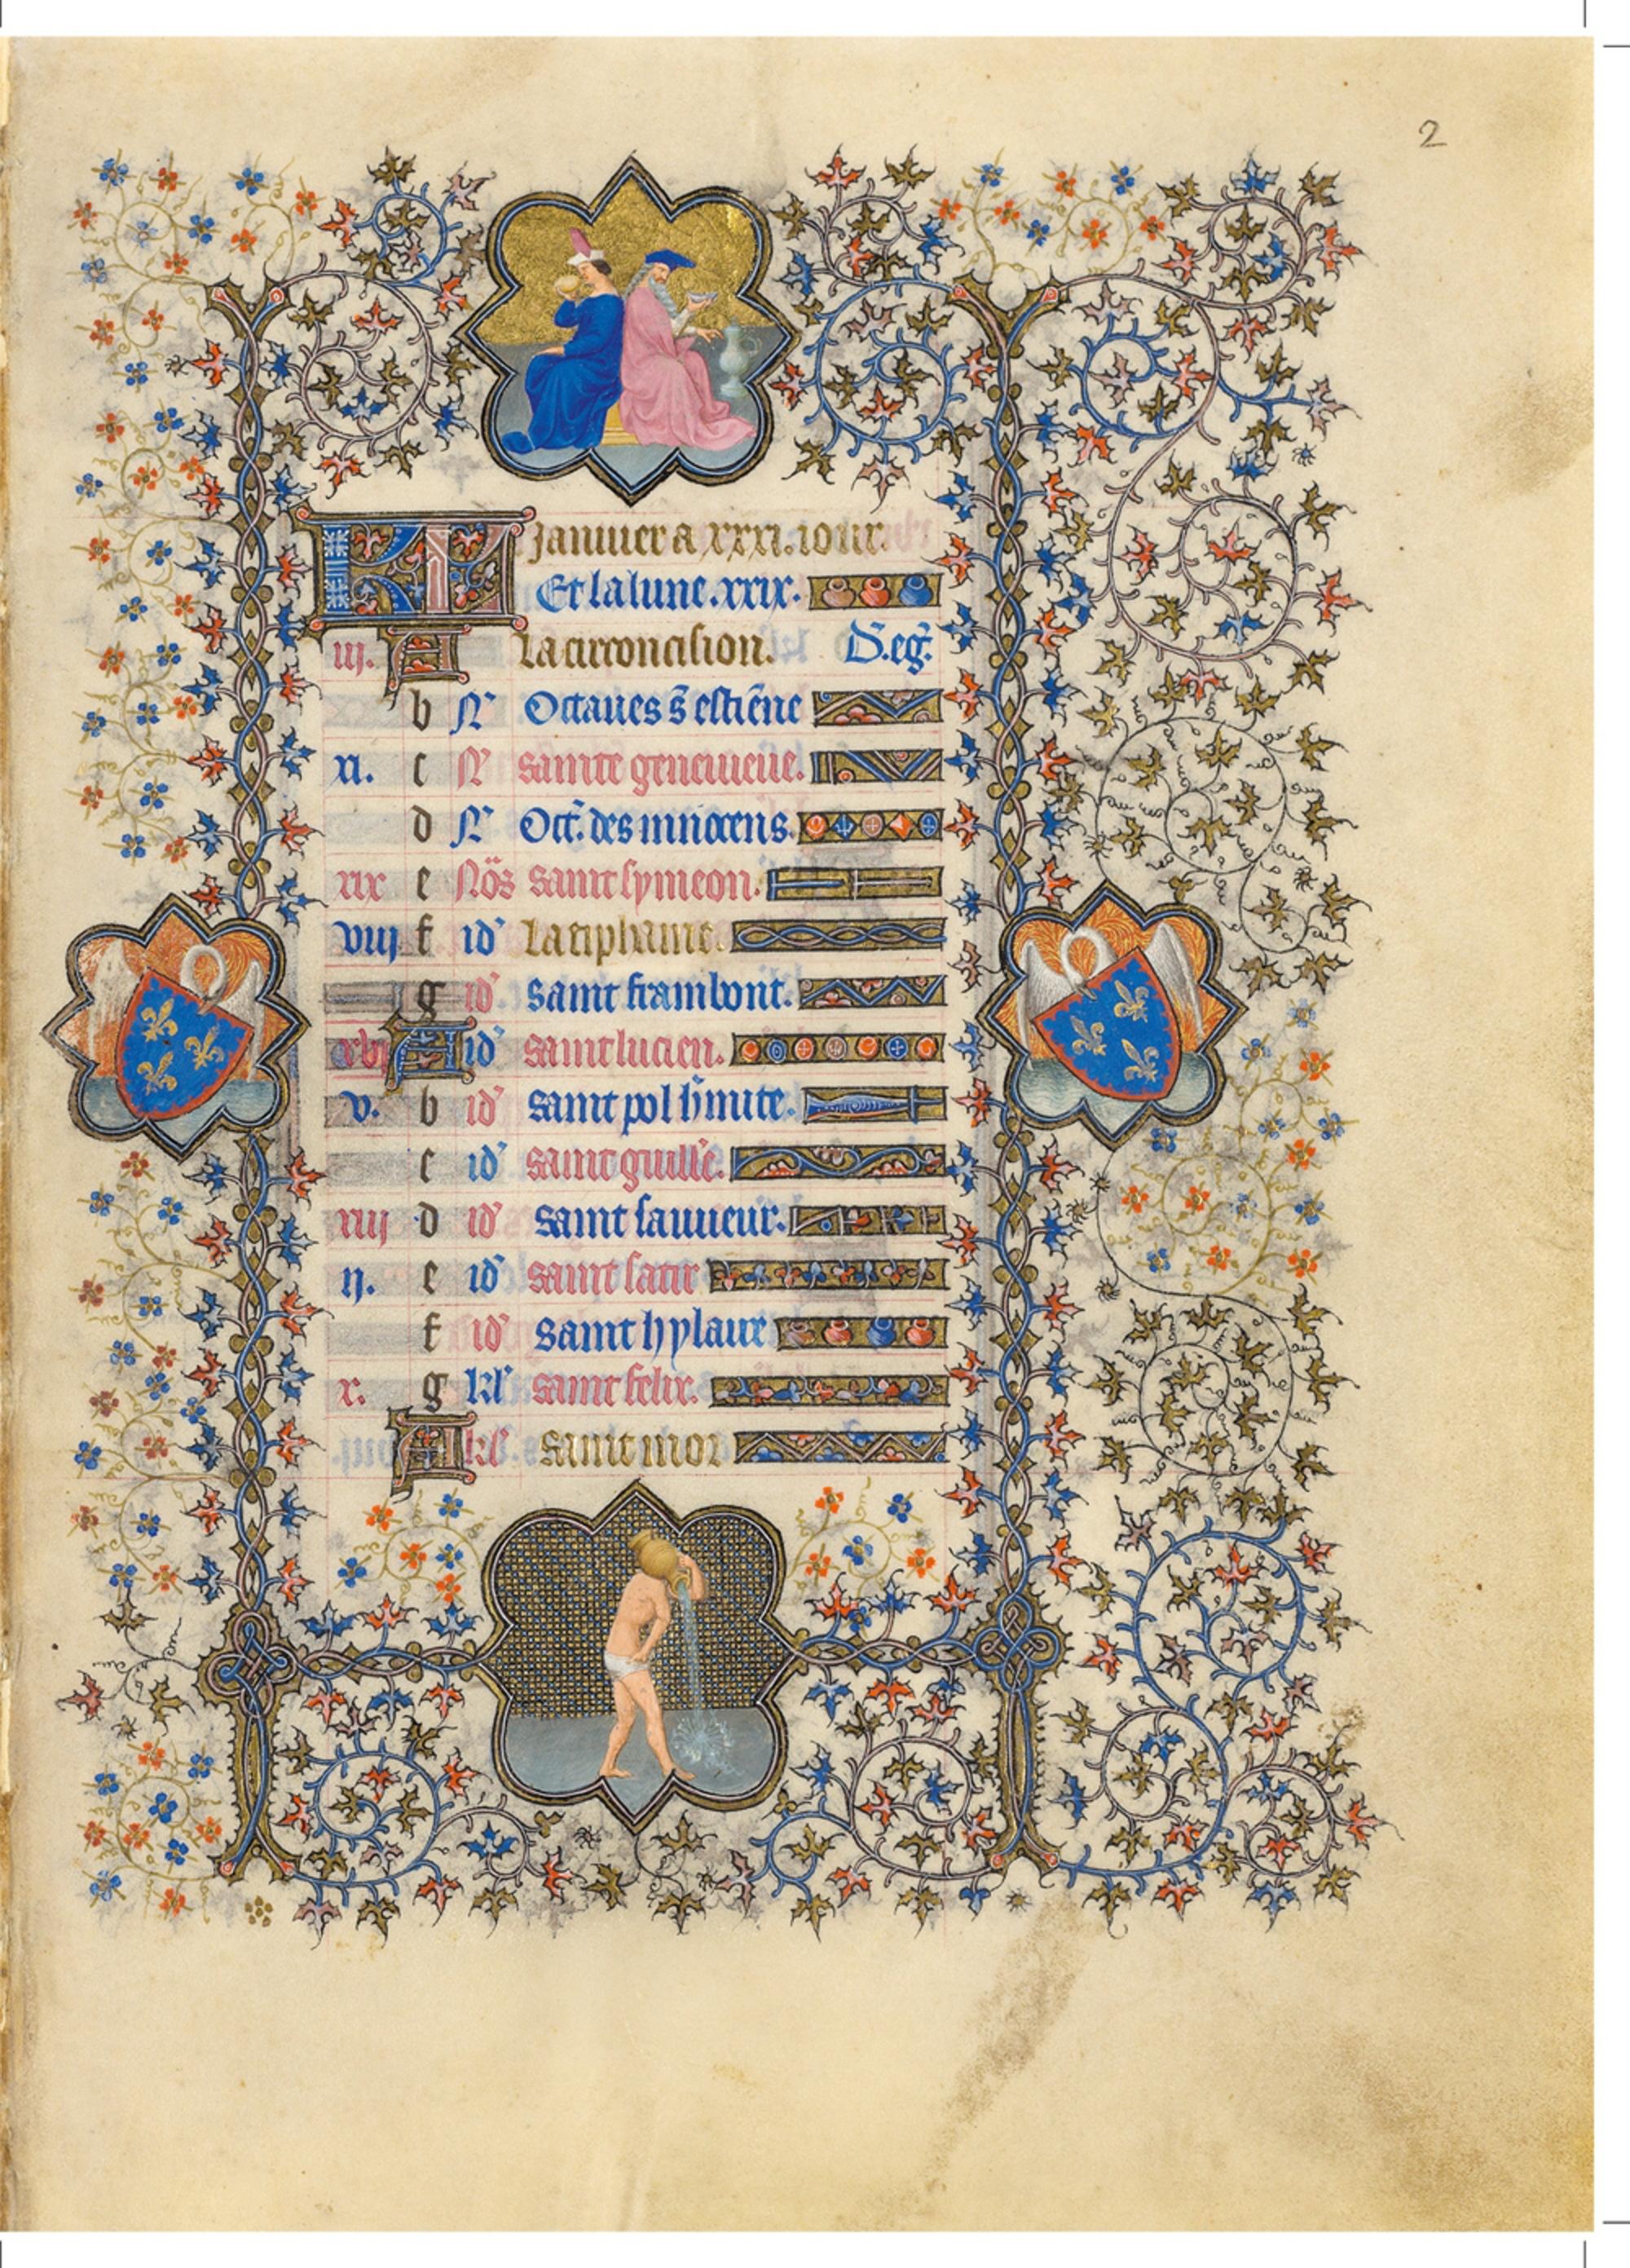 2
KL Januier a xxxi. iour.
Et la lune. xxix.
iii. A La circoncision. D. eg.
b N Octaues s estiene
xi. c N sainte geneuieue.
d N Oct. des innocens.
xix e Nos saint symeon.
viii f id La tiphaine.
g id saint frambout.
xvi A id saint lucien.
v. b id saint pol hmite.
c id saint guille.
xiii d id saint sauueur.
ii. e id saint satir
f id saint hylaire
x. g kl saint felix.
A kl saint mor